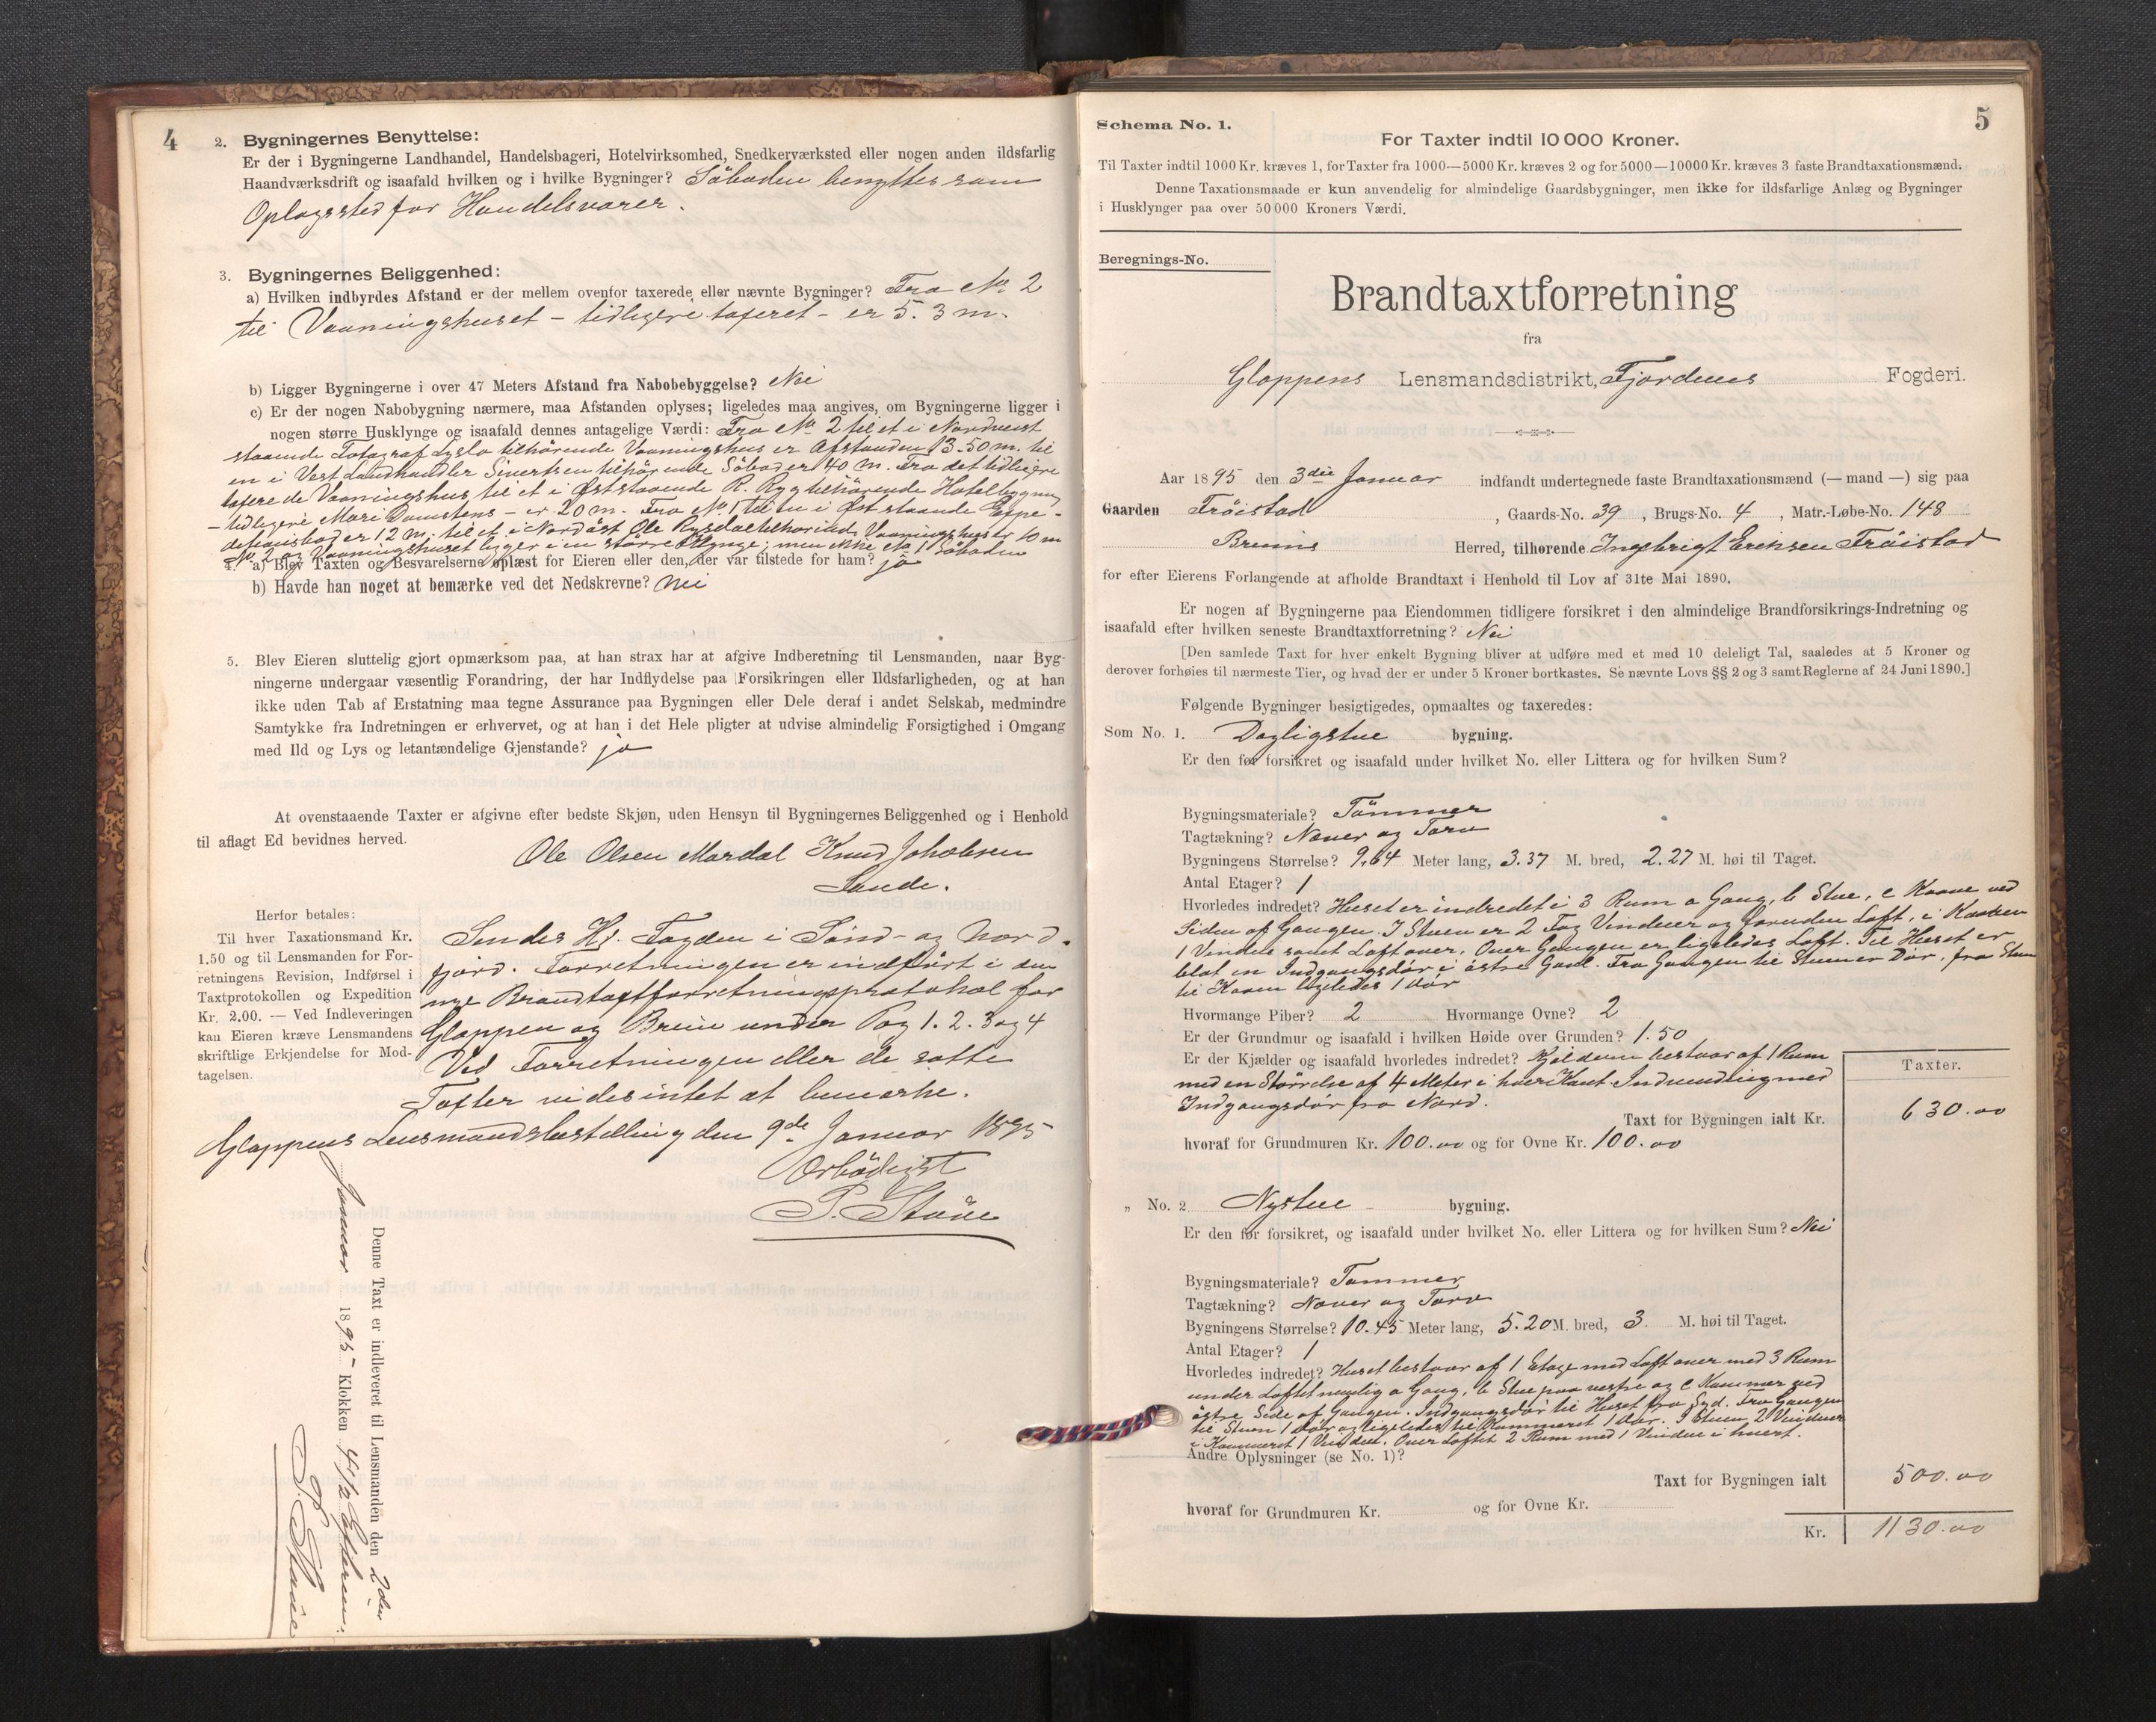 4
2. Bygningernes Benyttelse:
Er der i Bygningerne Landhandel, Handelsbageri, Hotelvirksomhed, Snedkerværksted eller nogen anden ildsfarlig
Haandværksdrift og isaafald hvilken og i hvilke Bygninger? Söboden benyttes som
Oplagssted for Handelsvarer.
3. Bygningernes Beliggenhed:
a) Hvilken indbyrdes Afstand er der mellem ovenfor taxerede eller nævnte Bygninger? Fra No 2
til Vaaningshuset - tidligere taxeret - er 5.3 m.
b) Ligger Bygningerne i over 47 Meters Afstand fra Nabobebyggelse? Nei
c) Er der nogen Nabobygning nærmere, maa Afstanden oplyses; ligeledes maa angives, om Bygningerne ligger i
nogen større Husklynge og isaafald dennes antagelige Værdi: Fra No 2 til et i Nordvest
staaende Fotograf Lyslo tilhörende Vaaningshus er Afstanden 13.50 m. til
en i Vest Landhandler Sivertsen tilhörende Söbod er 40 m. Fra det tidligere
taxerede Vaaningshus til et i Öst staaende R. Ryg tilhörende Hotelbygning
- tidligere Mari - er 20 m. Fra No 1 til en i Öst staaende Expe-
ditionsbod er 12 m. til et i Nordöst Ole Rysdal tilhörende Vaaningshus er 10 m
No 2 og Vaaningshuset ligger i en större Klynge; men ikke No 1 Söboden
4. a) Blev Taxten og Besvarelserne oplæst for Eieren eller den, der var tilstede for ham? ja
b) Havde han noget at bemærke ved det Nedskrevne? Nei
5. Blev Eieren sluttelig gjort opmærksom paa, at han strax har at afgive Indberetning til Lensmanden, naar Byg-
ningerne undergaar væsentlig Forandring, der har Indflydelse paa Forsikringen eller Ildsfarligheden, og at han
ikke uden Tab af Erstatning maa tegne Assurance paa Bygningen eller Dele deraf i andet Selskab, medmindre
Samtykke fra Indretningen er erhvervet, og at han i det Hele pligter at udvise almindelig Forsigtighed i Omgang
med Ild og Lys og letantændelige Gjenstande? ja
At ovenstaaende Taxter er afgivne efter bedste Skjøn, uden Hensyn til Bygningernes Beliggenhed og i Henhold
til aflagt Ed bevidnes herved.
Ole Olsen Mardal Knud Jakobsen
Sande.
Herfor betales:
Til hver Taxationsmand Kr.
1.50 og til Lensmanden for For-
retningens Revision, Indførsel i
Taxtprotokollen og Expedition
Kr. 2.00. — Ved Indleveringen
kan Eieren kræve Lensmandens
skriftlige Erkjendelse for Mod-
tagelsen.
Sendes Hr. Fogden i Sönd- og Nord-
fjord. Forretningen er indfört i den
nye Brandtaxtforretningsprotokol for
Gloppen og Breim under Pag 1. 2. 3 og 4
Ved Forretningen eller de satte
Taxter vides intet at bemærke.
Gloppens Lensmandsbestilling den 9de Januar 1895
Ærbödigst
P. Störe
Denne Taxt er indleveret til Lensmanden den 2den
Januar 1895 Klokken 4 1/2 Efterm.
P. Störe
5
Schema No. 1.
For Taxter indtil 10 000 Kroner.
Til Taxter indtil 1000 Kr. kræves 1, for Taxter fra 1000—5000 Kr. kræves 2 og for 5000—10000 Kr. kræves 3 faste Brandtaxationsmænd.
Denne Taxationsmaade er kun anvendelig for almindelige Gaardsbygninger, men ikke for ildsfarlige Anlæg og Bygninger
i Husklynger paa over 50 000 Kroners Værdi.
Beregnings-No.
Brandtaxtforretning
fra
Gloppens Lensmandsdistrikt, Fjordenes Fogderi.
Aar 1895 den 3die Januar indfandt undertegnede faste Brandtaxationsmænd (— mand —) sig paa
Gaarden Fröistad, Gaards-No. 39, Brugs-No. 4, Matr.-Løbe-No. 148
Breims Herred, tilhørende Ingebrigt Eriksen Fröistad
for efter Eierens Forlangende at afholde Brandtaxt i Henhold til Lov af 31te Mai 1890.
Er nogen af Bygningerne paa Eiendommen tidligere forsikret i den almindelige Brandforsikrings-Indretning og
isaafald efter hvilken seneste Brandtaxtforretning? Nei
[Den samlede Taxt for hver enkelt Bygning bliver at udføre med et med 10 deleligt Tal, saaledes at 5 Kroner og
derover forhøies til nærmeste Tier, og hvad der er under 5 Kroner bortkastes. Se nævnte Lovs §§ 2 og 3 samt Reglerne af 24 Juni 1890.]
Følgende Bygninger besigtigedes, opmaaltes og taxeredes:
Som No. 1. Dagligstue bygning.
Er den før forsikret og isaafald under hvilket No. eller Littera og for hvilken Sum?
Bygningsmateriale? Tömmer
Tagtækning? Næver og Torv
Bygningens Størrelse? 9,64 Meter lang, 3.37 M. bred, 2.27 M. høi til Taget.
Antal Etager? 1
Hvorledes indredet? Huset er indredet i 3 Rum a Gang, b Stue, c Kaave ved
Siden af Gangen. I Stuen er 2 Fag Vinduer og foruden Loft, i Kaaven
1 Vindue samt Loft over. Over Gangen er ligeledes Loft. Til Huset er
blot en Indgangsdör i östre Gavl. Fra Gangen til Stuen er Dör, fra Stuen
til Kaaven ligeledes 1 Dör
Hvormange Piber? 2 Hvormange Ovne? 2
Er der Grundmur og isaafald i hvilken Høide over Grunden? 1.50
Er der Kjælder og isaafald hvorledes indredet? Kjelderen bestaar af 1 Rum
med en Störrelse af 4 Meter i hver Kant. med
Indgangsdör fra Nord.
Taxter.
Taxt for Bygningen ialt Kr. 630.00
hvoraf for Grundmuren Kr. 100.00 og for Ovne Kr. 100.00
„ No. 2 Nystue bygning.
Er den før forsikret, og isaafald under hvilket No. eller Littera og for hvilken Sum? Nei
Bygningsmateriale? Tømmer
Tagtækning? Næver og Torv
Bygningens Størrelse? 10.45 Meter lang, 5.20 M. bred, 3. M. høi til Taget.
Antal Etager? 1
Hvorledes indredet? Huset bestaar af 1 Etage med Loft over med 3 Rum
under Loftet nemlig a Gang, b Stue paa vestre og c Kammer ved
östre Side af Gangen. Indgangsdör til Huset fra Syd. Fra Gangen
til Stuen 1 Dör og ligeledes til Kammeret 1 Dör. I Stuen 2 Vinduer
i Kammeret 1 Vindue. Over Loftet 2 Rum med 1 Vindue i hvert.
Andre Oplysninger (se No. 1)?
Taxt for Bygningen ialt 500.00
hvoraf for Grundmuren Kr. og for Ovne Kr.
Kr. 1130.00